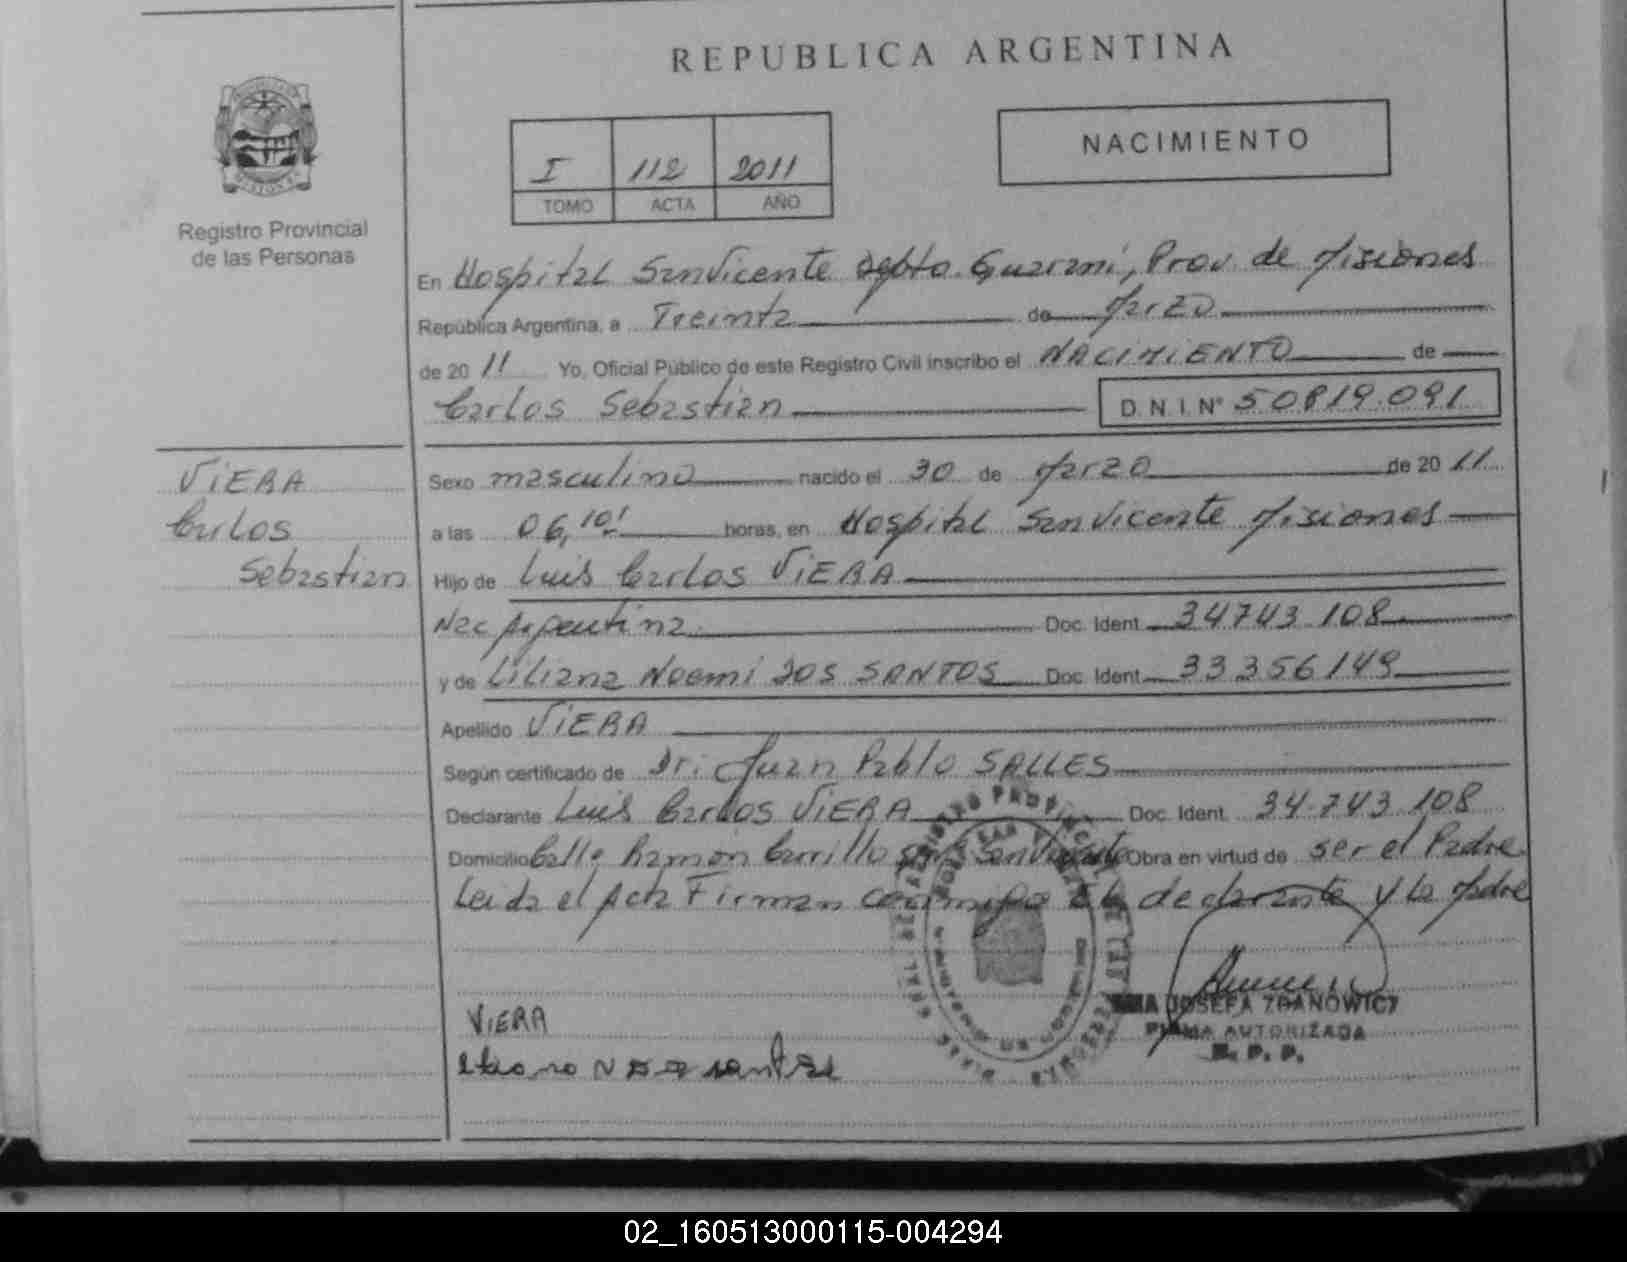 REPUBLICA ARGENTINA
I 112 2011
TOMO ACTA AÑO
NACIMIENTO
Registro Provincial
de las Personas
En Hospital San Vicente Depto. Guarani, Prov. de Misiones
República Argentina, a Treinta de Marzo
de 2011 Yo, Oficial Público de este Registro Civil inscribo el NACIMIENTO de
Carlos Sebastian D.N.I. N° 50819.091
VIERA
Carlos
Sebastian
Sexo masculino nacido el 30 de Marzo de 2011
a las 06,10' horas, en Hospital San Vicente Misiones
Hijo de Luis Carlos VIERA
Nac Argentina Doc. Ident. 34743.108
y de Liliana Noemi DOS SANTOS Doc. Ident. 33356149
Apellido VIERA
Según certificado de Dr. Juan Pablo SALLES
Declarante Luis Carlos VIERA Doc. Ident. 34.743.108
Domicilio Calle Ramón Carrillo San Vicente Obra en virtud de ser el Padre
Leida el Acta Firman conmigo el declarante y la Madre
VIERA
JOSEFA ZDANOWICZ
FIRMA AUTORIZADA
R. P. P.
02_160513000115-004294